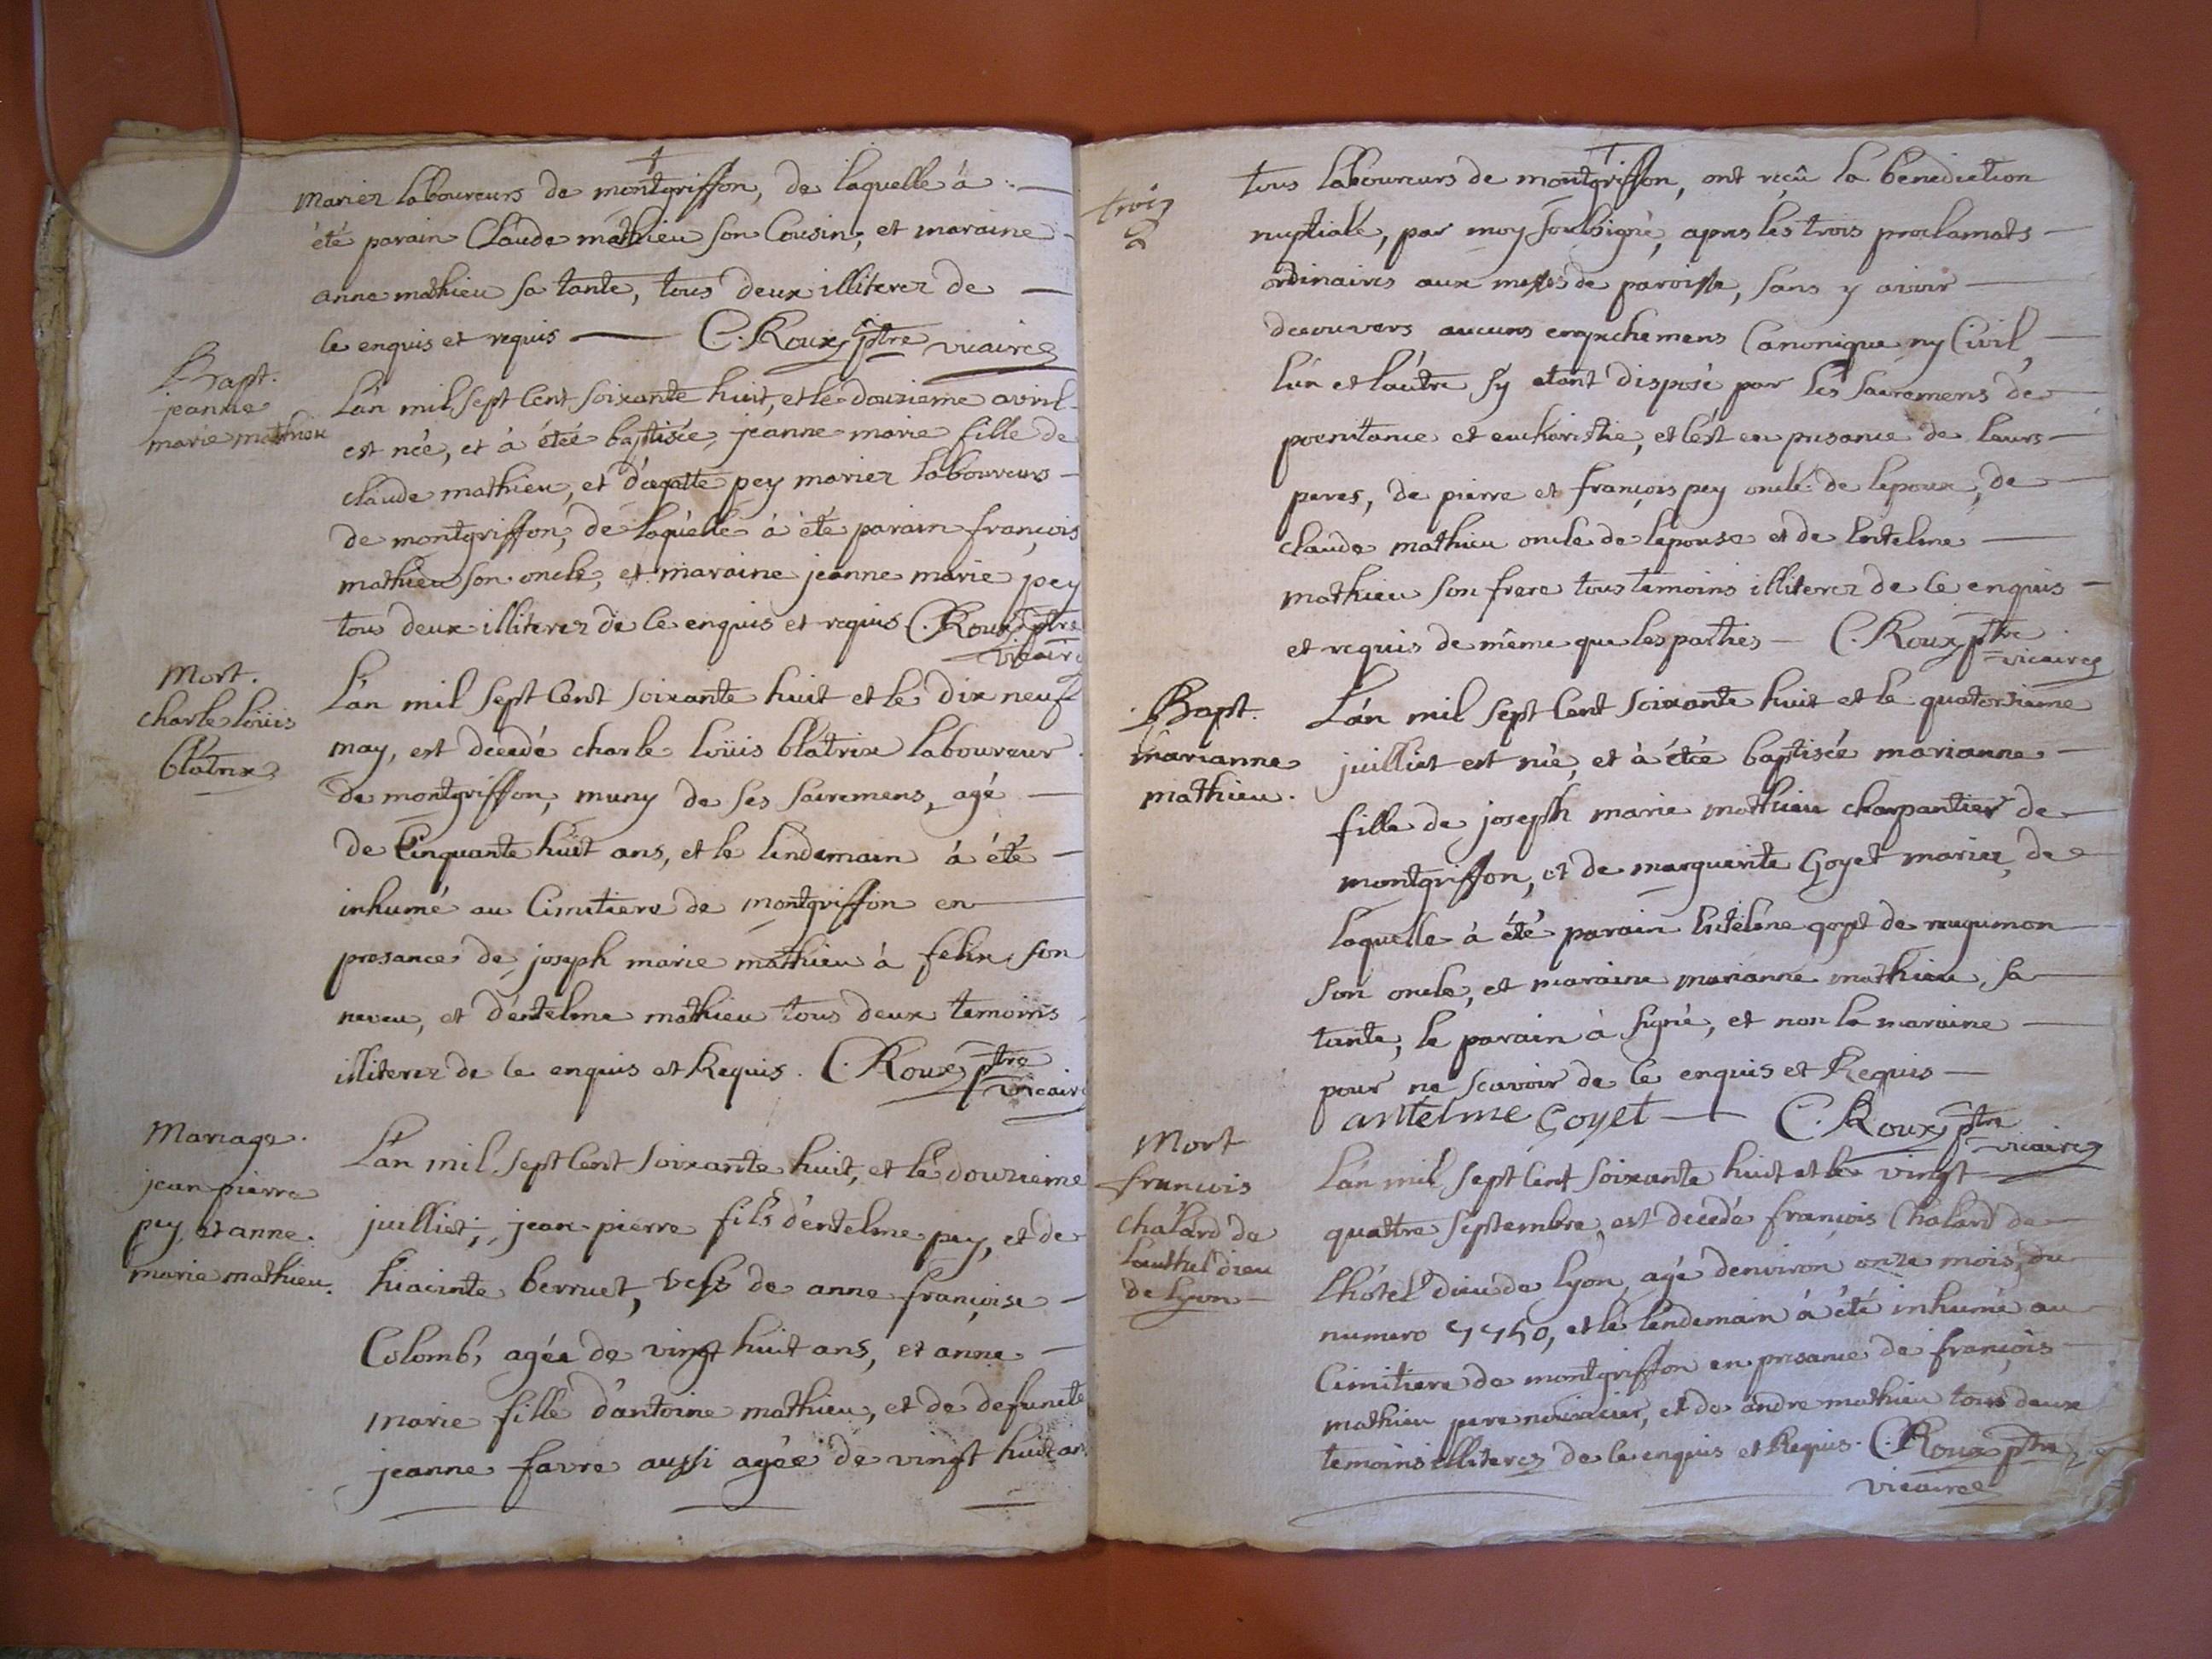 mariez laboureurs de montgriffon, de laquelle à
été parain Claude mathieu son Cousin, et maraine
anne mathieu sa tante, tous deux illiterez de
ce enquis et requis C. Roux ptre vicaire
Bapt.
jeanne
marie mathieu
L'an mil sept Cent soixante huit, et le douzieme avril
est née, et à étéé baptisée, jeanne marie fille de
claude mathieu, et d'agatte pey mariez laboureurs
de montgriffon, de laquelle à été parain françois
mathieu son oncle, et maraine jeanne marie pey
tous deux illiterez de ce enquis et requis C. Roux ptre
vicaire
Mort.
charle loüis
blatrix
L'an mil sept Cent soixante huit et le dix neuf
may, est decedé charle loüis blatrix laboureur
de montgriffon, muny de ses sacremens, agé
de Cinquante huit ans, et le lindemain à été
inhumé au Cimitiere de montgriffon en
presance de joseph marie mathieu à felix son
neveu, et d'entelme mathieu tous deux temoins
illiterez de ce enquis et Requis. C. Roux ptre
vicaire
Mariage.
jean pierre
pey et anne
marie mathieu.
L'an mil sept Cent soixante huit, et le douzieme
juilliet, jean pierre fils d'entelme pey, et de
hiacinte berruet, vefs de anne françoise
Colomb, agée de vingt huit ans, et anne
marie fille d'antoine mathieu, et de defuncte
jeanne favre aussi agée de vingt huit ans
trois
tous laboureurs de montgriffon, ont reçû la bénediction
nuptiale, par moy soubsigné, apres les trois proclamats
ordinaires aux messes de paroisse, sans y avoir
decouvers aucuns empechemens Canonique ny Civil,
l'un et l'autre s'y etant disposé par les sacremens de
poenitance et eucharistie, et c'est en presance de leurs
peres, de pierre et françois pey oncle de l'epoux, de
claude mathieu oncle de l'epouse et de Entelme
mathieu son frere tous temoins illiterez de ce enquis
et requis de même que les parties C. Roux ptre
vicaire
Bapt.
marianne
mathieu.
L'an mil sept Cent soixante huit et le quatorzieme
juilliet est née, et à étéé baptisée marianne
fille de joseph marie mathieu charpantier de
montgriffon, et de marguerite Goyet mariez, de
laquelle à été parain Entelme goyet de
son oncle, et maraine marianne mathieu, sa
tante, le parain à signé, et non la maraine
pour ne scavoir de ce enquis et Requis
antelme goyet C. Roux ptre
vicaire
Mort
francois
chalard de
l'authel dieu
de lyon
L'an mil sept Cent soixante huit et le vingt
quattre septembre, est decedé françois Chalard de
l'hôtel dieu de lyon, agé d'environ onze mois, du
numero et le lendemain à été inhumé au
Cimitiere de montgriffon en presance de françois
mathieu pere nouricier, et de andre mathieu tous deux
temoins illiterez de ce enquis et Requis. C. Roux ptre
vicaire